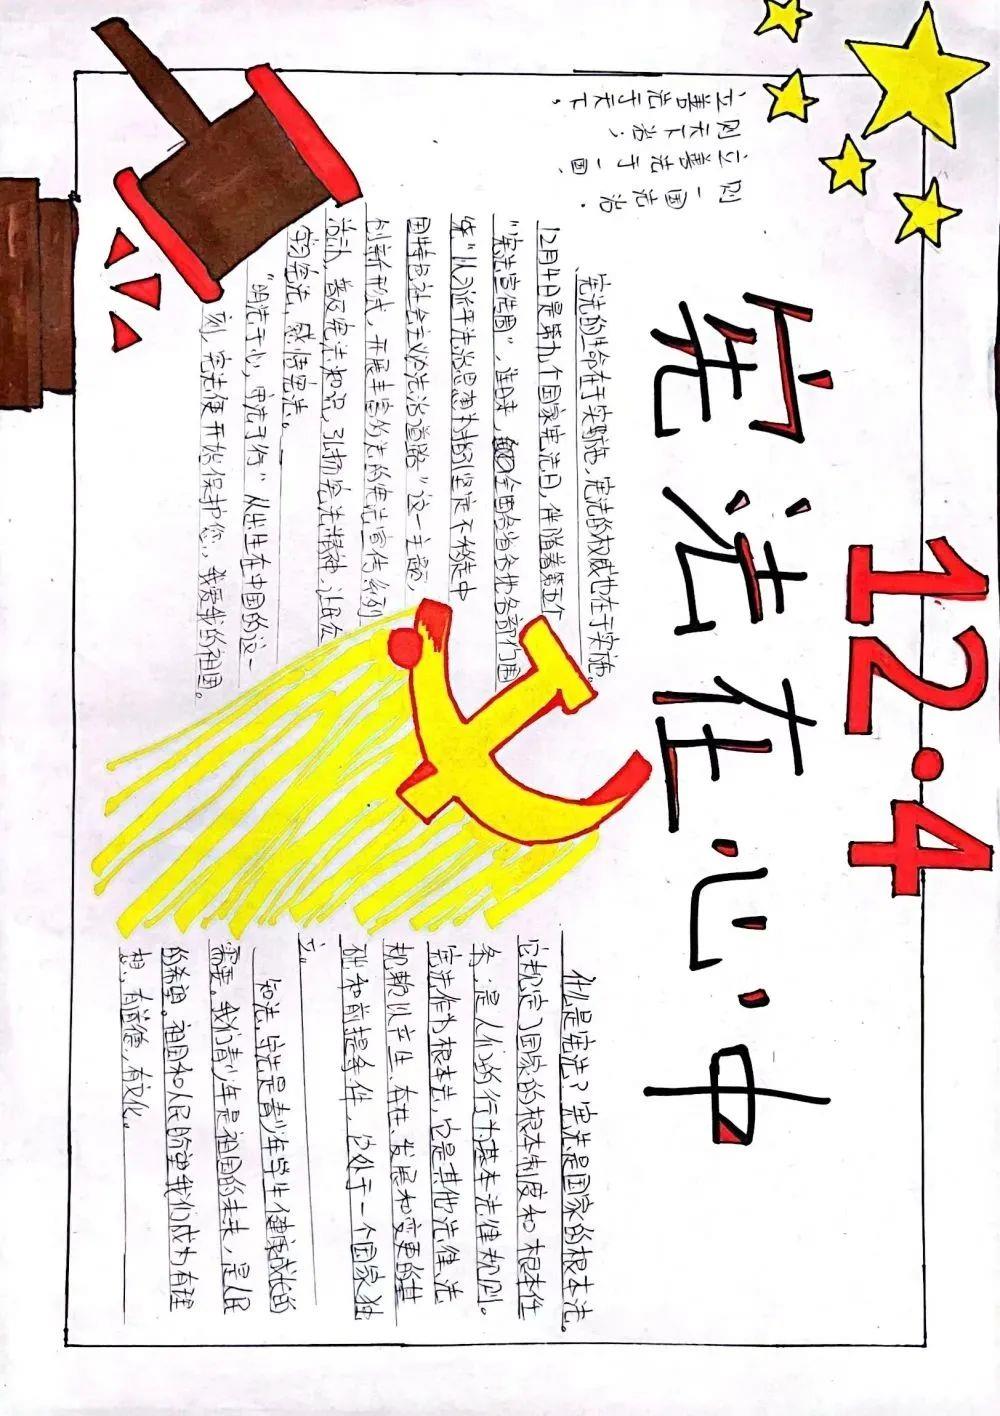 12·4
宪法在心中
立善法于天下，
则天下治；
立善法于一国，
则一国法治．
宪法的生命在于实施，宪法的权威也在于实施。
12月4日是第九个国家宪法日，伴随着第五个
"宪法宣传周"，连日来，全国各省各地各部门围
绕"以习近平法治思想为指引坚定不移走中
国特色社会主义法治道路"这一主题，
创新形式，开展丰富的法的宪法宣传系列
活动，普及宪法知识，弘扬宪法精神，让民众
宪法，感悟宪法。
"明法于心，守法于行"从出生在中国的这一
刻，宪法便开始保护您，我爱我的祖国。
什么是宪法？宪法是国家的根本法。
它规定了国家的根本制度和根本任
务，是人们的行为基本法律规则。
宪法作为根本法，它是其他法律法
规赖以产生、存在、发展和变更的基
础和前提条件，它处于一个国家独
立。
知法，守法是青少年学生健康成长的
需要。我们青少年是祖国的未来，是人民
的希望。祖国和人民盼望我们成为有理
想，有道德，有文化。